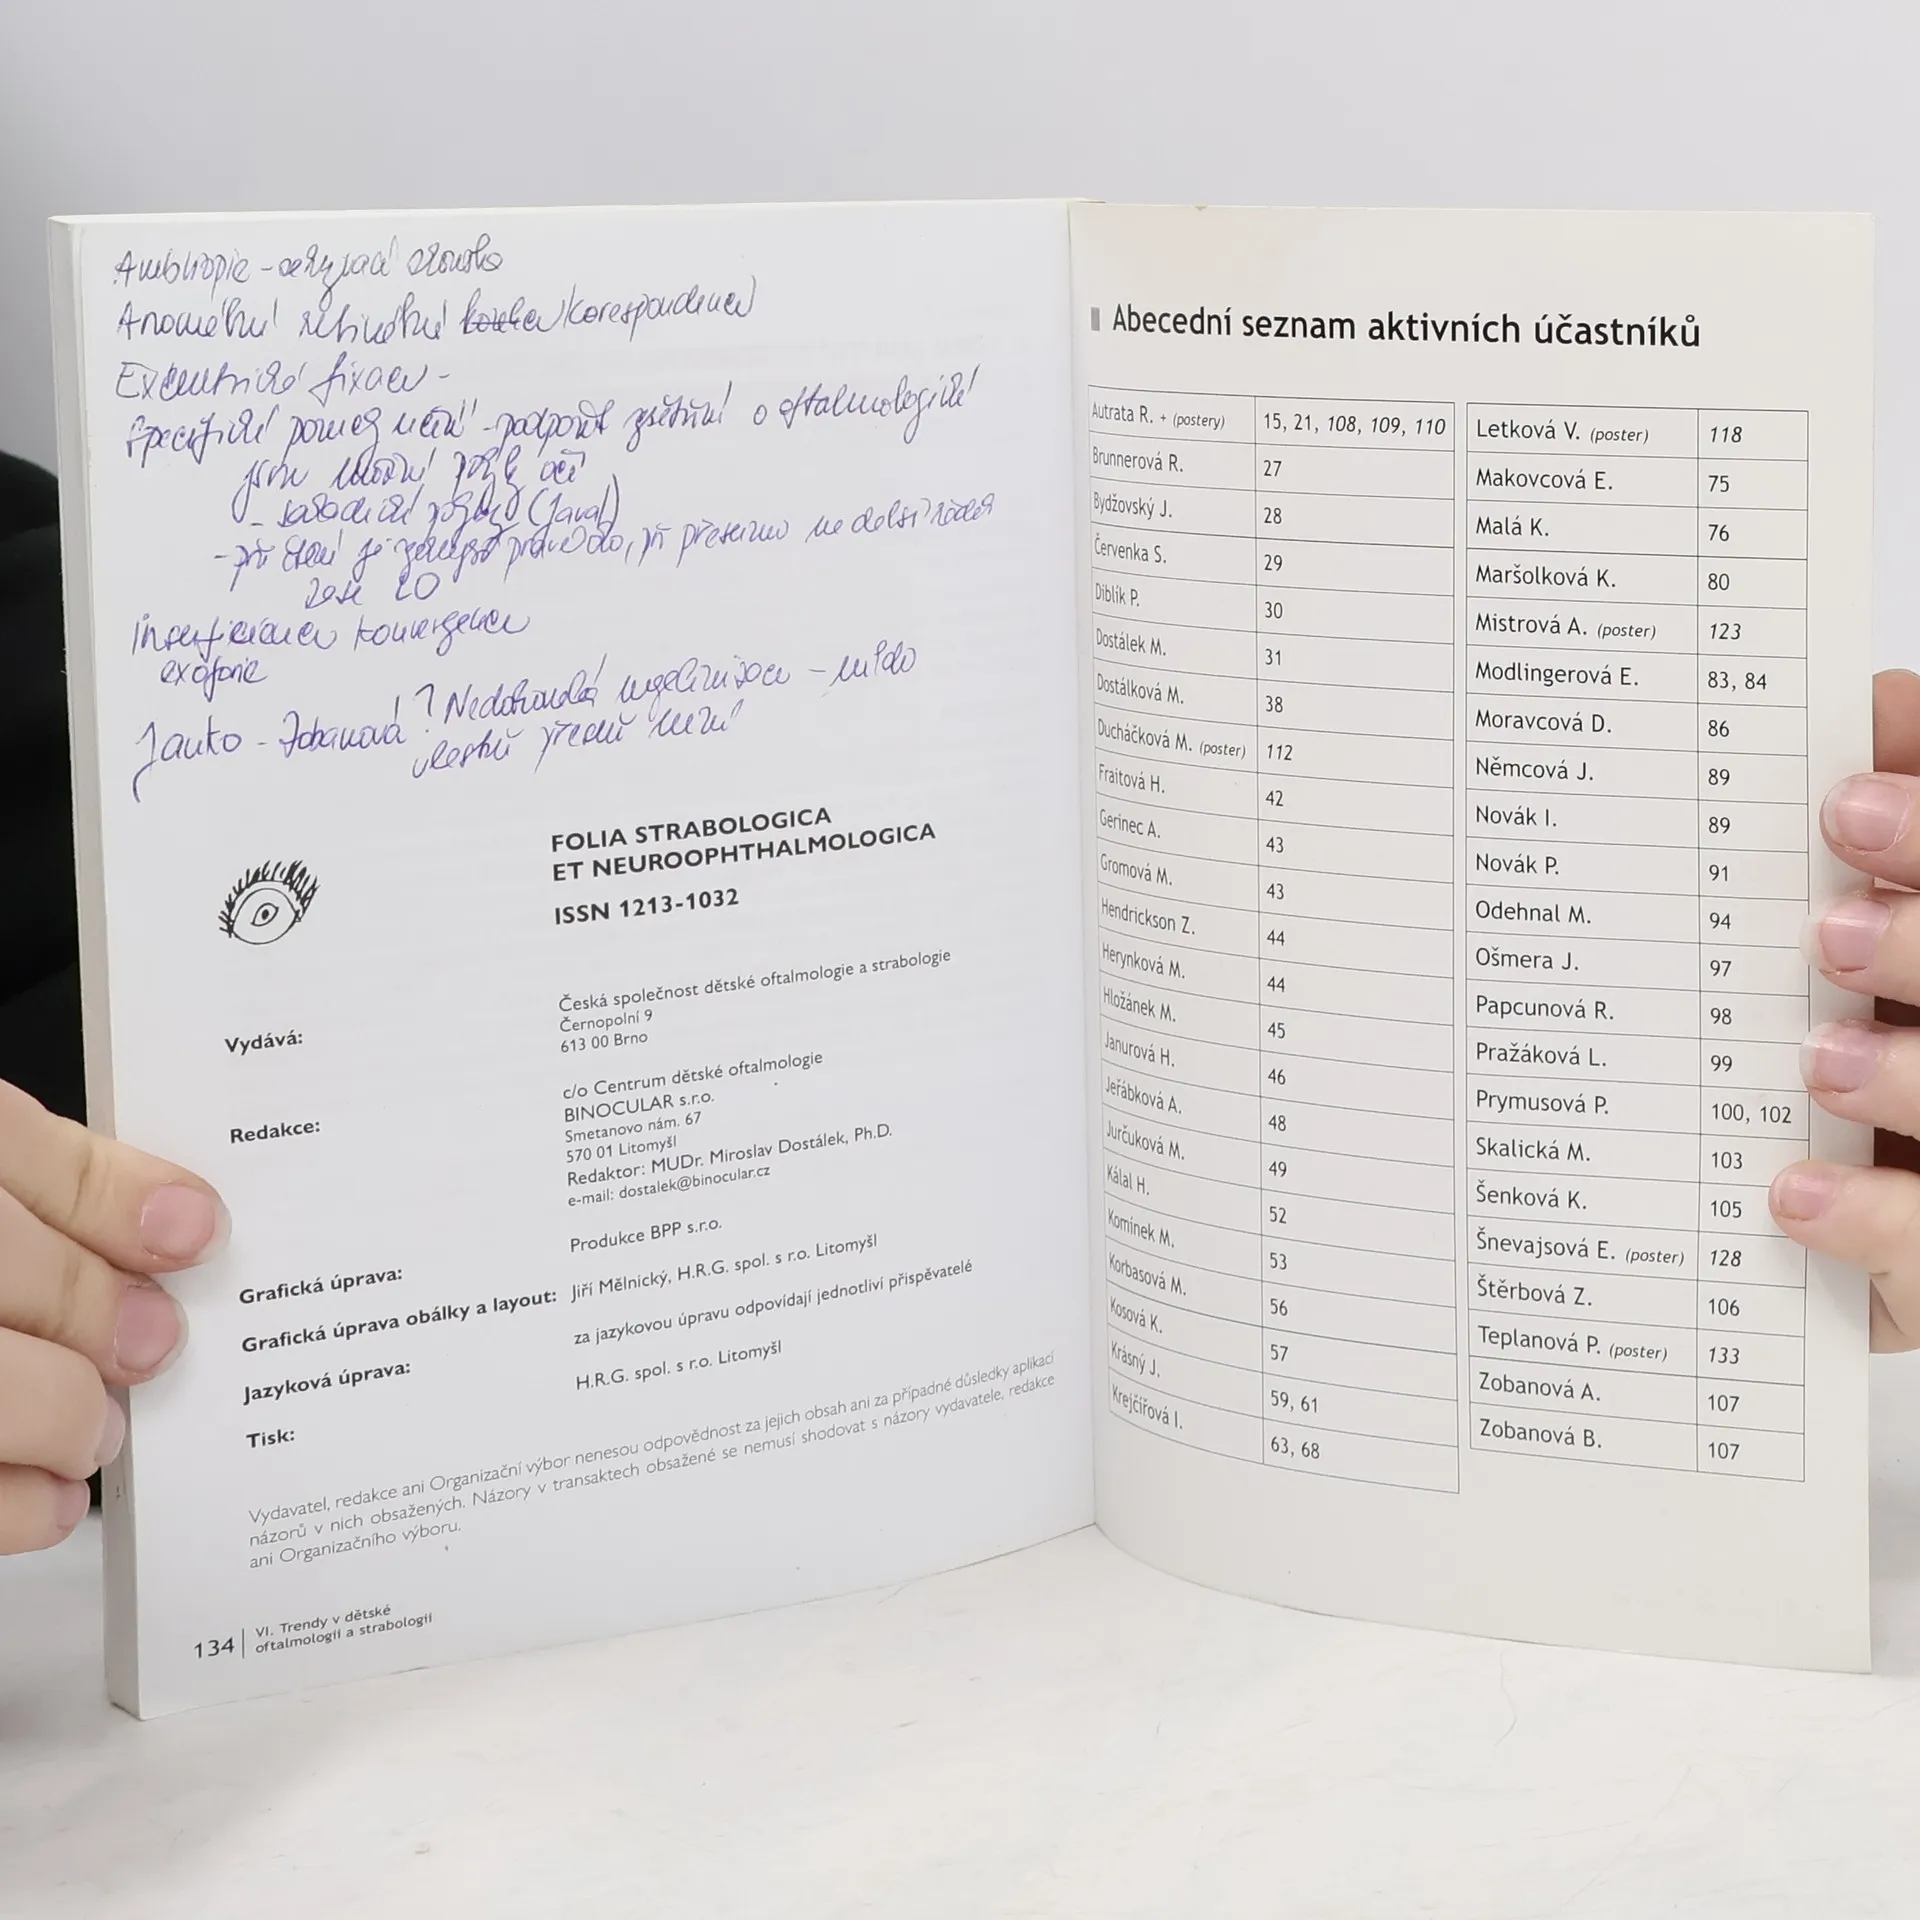 Ambliopie - okluzní zkouška
Anomální retinální korespondence
Excentrická fixace -
Specifické poruchy učení - podpořit o oftalmologické
jsou oči
- sakadické pohyby (Javal)
- při čtení je pravé oko, při přesunu na další řádek
zase LO
Insuficience konvergence
exoforie
Janko - Zobanová! ? Nedokonalá myelinizace - málo
FOLIA STRABOLOGICA
ET NEUROOPHTHALMOLOGICA
ISSN 1213-1032
Vydává: Česká společnost dětské oftalmologie a strabologie
Černopolní 9
613 00 Brno
Redakce: c/o Centrum dětské oftalmologie
BINOCULAR s.r.o.
Smetanovo nám. 67
570 01 Litomyšl
Redaktor: MUDr. Miroslav Dostálek, Ph.D.
e-mail: dostalek@binocular.cz
Grafická úprava: Produkce BPP s.r.o.
Grafická úprava obálky a layout: Jiří Mělnický, H.R.G. spol. s r.o. Litomyšl
Jazyková úprava: za jazykovou úpravu odpovídají jednotliví přispěvatelé
Tisk: H.R.G. spol. s r.o. Litomyšl
Vydavatel, redakce ani Organizační výbor nenesou odpovědnost za jejich obsah ani za případné důsledky aplikací
názorů v nich obsažených. Názory v transaktech obsažené se nemusí shodovat s názory vydavatele, redakce
ani Organizačního výboru.
134 VI. Trendy v dětské
oftalmologii a strabologii
Abecední seznam aktivních účastníků
Autrata R. + (postery) 15, 21, 108, 109, 110
Brunnerová R. 27
Bydžovský J. 28
Červenka S. 29
Diblík P. 30
Dostálek M. 31
Dostálková M. 38
Ducháčková M. (poster) 112
Fraitová H. 42
Gerinec A. 43
Gromová M. 43
Hendrickson Z. 44
Herynková M. 44
Hložánek M. 45
Janurová H. 46
Jeřábková A. 48
Jurčuková M. 49
Kálal H. 52
Komínek M. 53
Korbasová M. 56
Kosová K. 57
Krásný J. 59, 61
Krejčířová I. 63, 68
Letková V. (poster) 118
Makovcová E. 75
Malá K. 76
Maršolková K. 80
Mistrová A. (poster) 123
Modlingerová E. 83, 84
Moravcová D. 86
Němcová J. 89
Novák I. 89
Novák P. 91
Odehnal M. 94
Ošmera J. 97
Papcunová R. 98
Pražáková L. 99
Prymusová P. 100, 102
Skalická M. 103
Šenková K. 105
Šnevajsová E. (poster) 128
Štěrbová Z. 106
Teplanová P. (poster) 133
Zobanová A. 107
Zobanová B. 107